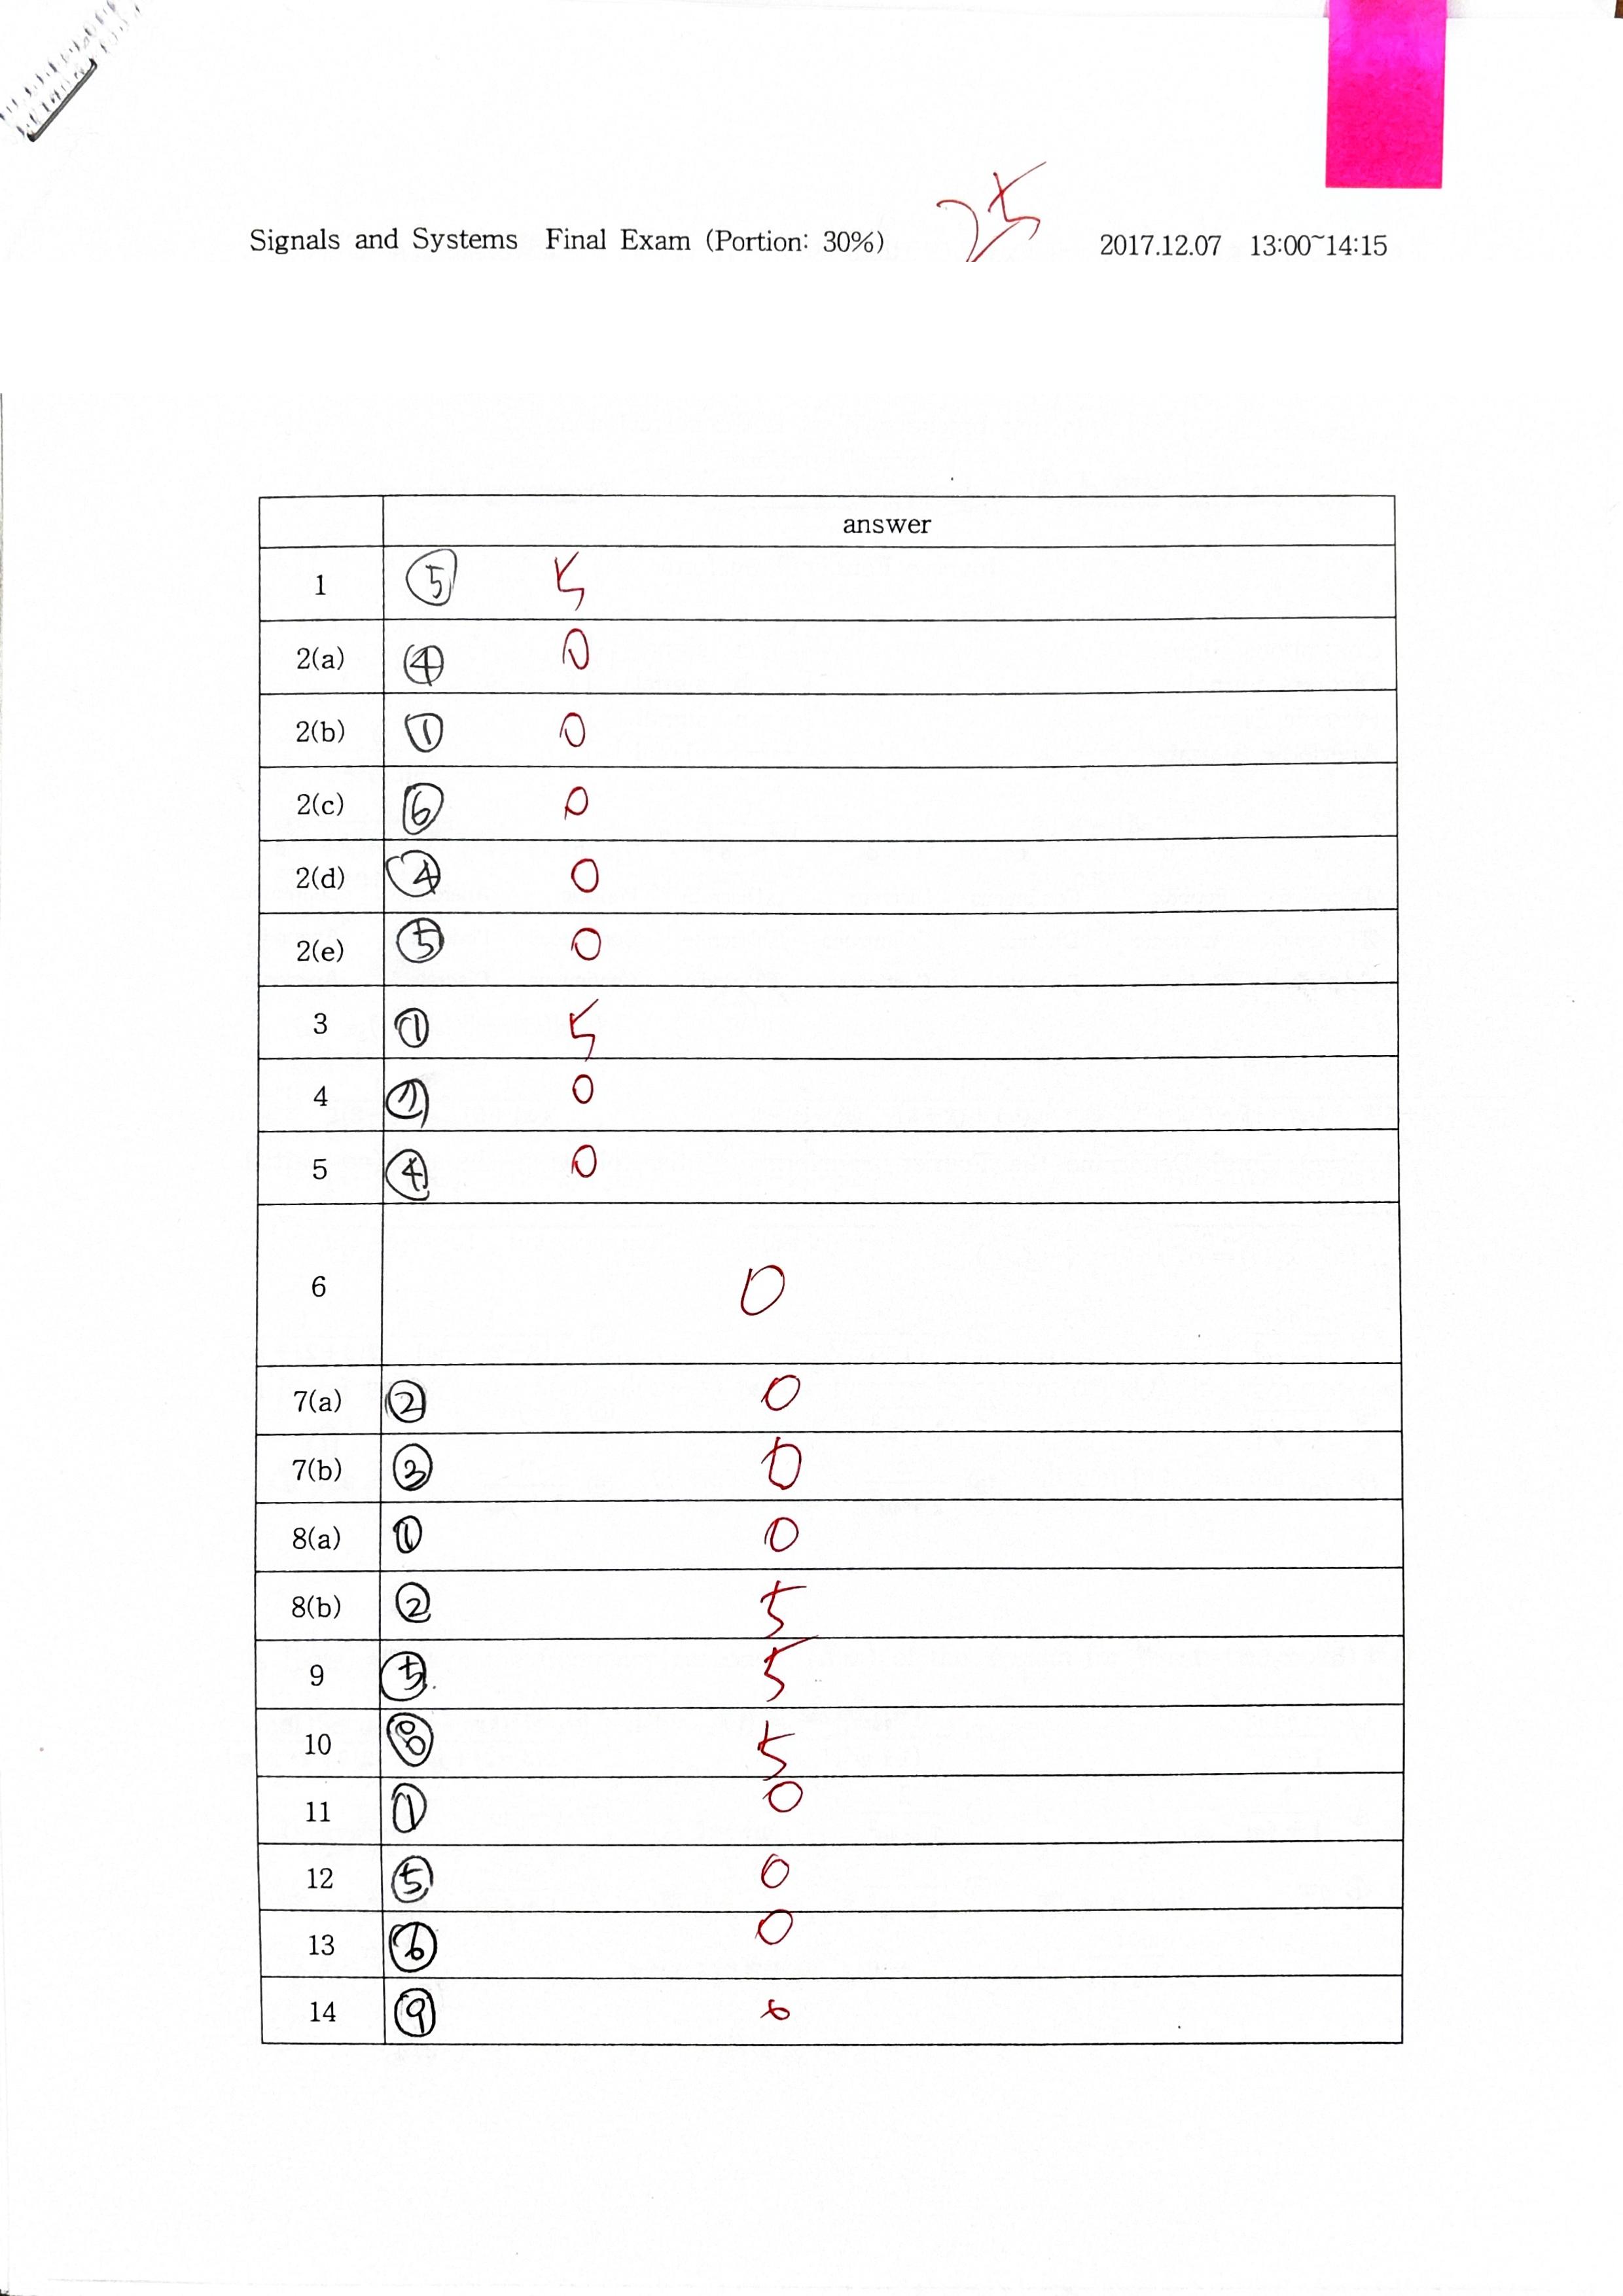 25
Signals and Systems Final Exam (Portion: 30%) 2017.12.07 13:00~14:15
answer
1 ⑤ 5
2(a) ④ 0
2(b) ① 0
2(c) ⑥ 0
2(d) ④ 0
2(e) ⑤ 0
3 ① 5
4 ① 0
5 ④ 0
6 0
7(a) ② 0
7(b) ③ 0
8(a) ① 0
8(b) ② 5
9 ⑤ 5
10 ⑧ 5
11 ① 0
12 ⑤ 0
13 ⑥ 0
14 ⑨ 0